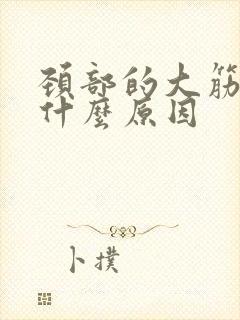 頸部的大筋
什麼原因
卜撲